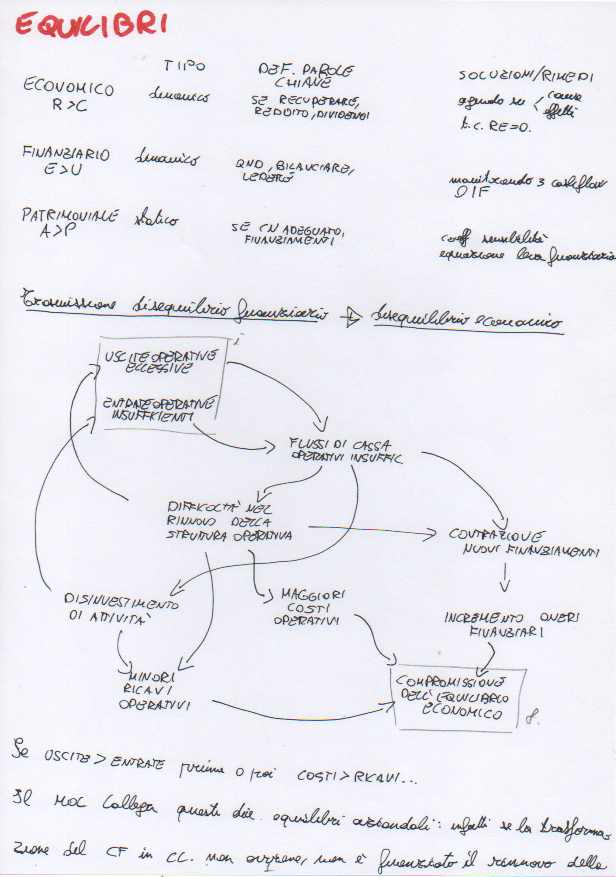 EQUILIBRI
TIPO DEF. PAROLE CHIAVE SOLUZIONI/RIMEDI
ECONOMICO dinamico SE RECUPERARE, agendo su < cause
R>C REDDITO, DIVIDENDI effetti
t.c. RE=0.
FINANZIARIO dinamico QND, BILANCIARE, monitorando 3 cashflow
E>U DIF
PATRIMONIALE statico SE CN ADEGUATO, coeff sensibilità
A>P FINANZIAMENTI equazione leva finanziaria
Trasmissione disequilibrio finanziario → disequilibrio economico
USCITE OPERATIVE
ECCESSIVE
ENTRATE OPERATIVE
INSUFFICIENTI
FLUSSI DI CASSA
OPERATIVI INSUFFIC.
DIFFICOLTÀ NEL
RINNOVO DELLA
STRUTURA OPERATIVA
CONTRAZIONE
NUOVI FINANZIAMENTI
DISINVESTIMENTO
DI ATTIVITÀ
MAGGIORI
COSTI
OPERATIVI
INCREMENTO ONERI
FINANZIARI
MINORI
RICAVI
OPERATIVI
COMPROMISSIONE
DELL'EQUILIBRIO
ECONOMICO
Se USCITE > ENTRATE prima o poi COSTI > RICAVI...
Il MOL collega questi due equilibri aziendali: infatti se la trasforma
zione del CF in CC. non avviene, non è finanziato il rinnovo della